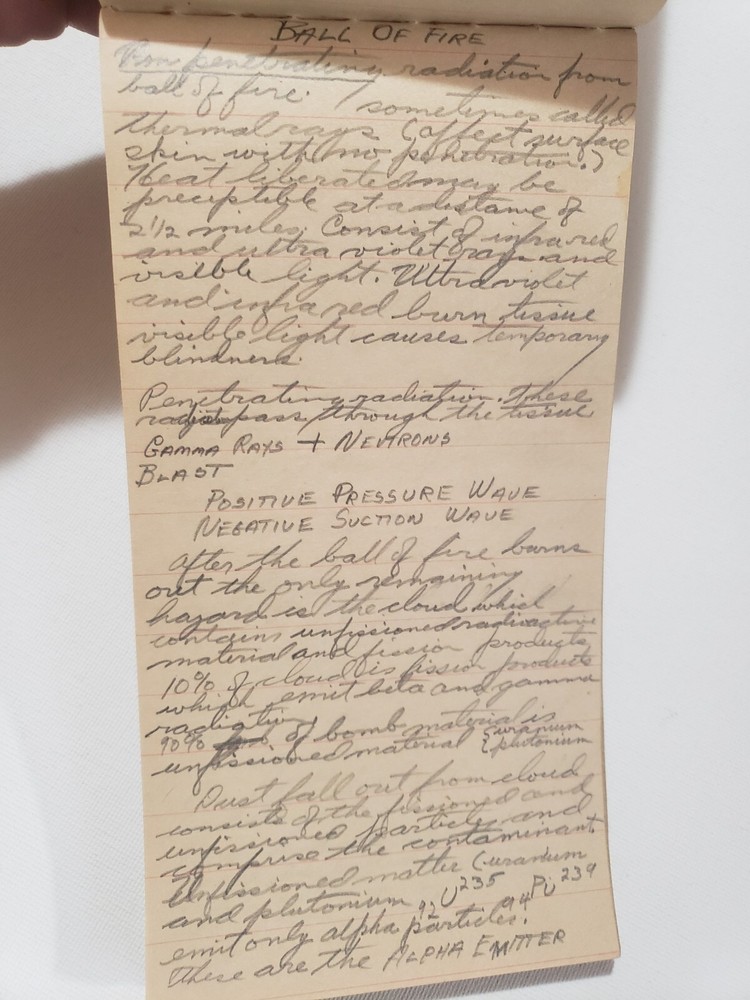 BALL OF FIRE
Non penetrating radiation from
ball of fire. sometimes called
thermal rays (affect surface
skin with no penetration.)
Heat liberated may be
preceptible at a distance of
2 1/2 miles. Consist of infra red
and ultra violet rays and
visible light. Ultra violet
and infra red burn tissue
visible light causes temporary
blindness.
Penetrating radiation. These
pass through the tissue
GAMMA RAYS + NEUTRONS
BLAST
POSITIVE PRESSURE WAVE
NEGATIVE SUCTION WAVE
After the ball of fire burns
out the only remaining
hazard is the cloud which
contains unfissioned radioactive
material and fission products
10% of cloud is fission products
which emit beta and gamma
radiation
90% of bomb material is
unfissioned material { uranium
{ plutonium
Dust fall out from cloud
consists of the fissioned and
unfissioned particles and
comprise the contaminant
Unfissioned matter (uranium
and plutonium 92U235 94Pu239
emit only alpha particles.
These are the ALPHA EMITTER